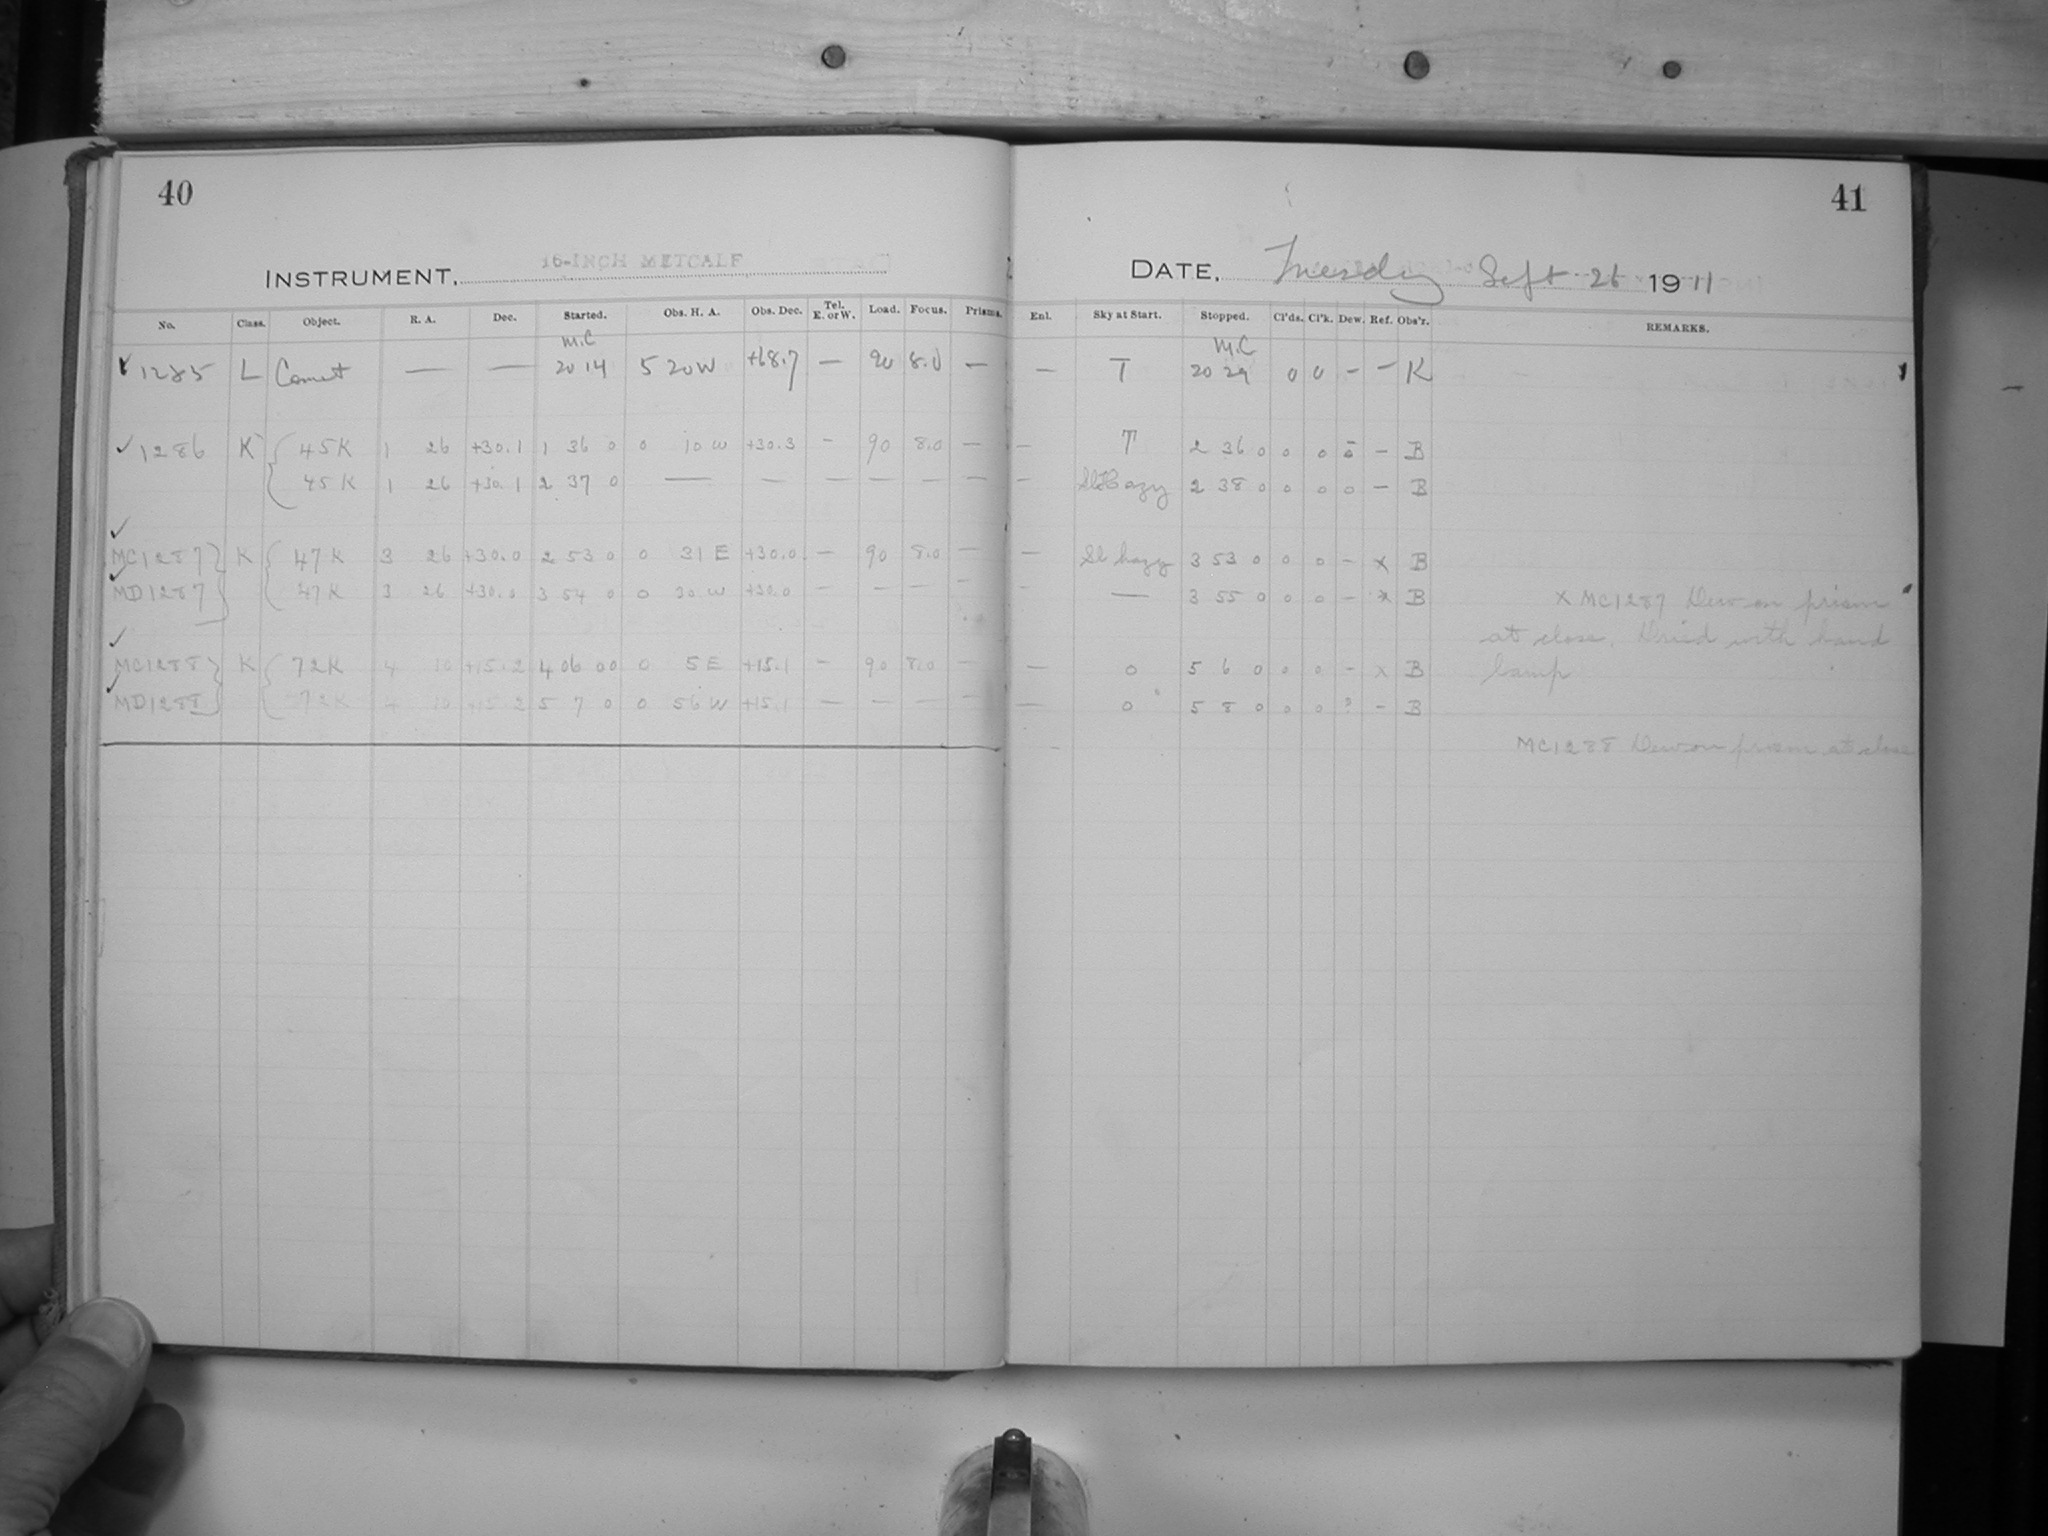 40
41
INSTRUMENT, 16-INCH METCALF
DATE, Tuesday Sept 26 1911
No. Class. Object. R. A. Dec. Started. Obs. H. A. Obs. Dec. Tel. E. or W. Load. Focus. Prisms. Enl. Sky at Start. Stopped. Cl'ds. Cl'k. Dew. Ref. Obs'r. REMARKS.
M.C M.C
✓ 1285 L Comet — — 20 14 5 20 W +68.7 — 90 8.0 — — T 20 29 0 0 - - K
✓ 1286 K { 45 K 1 26 +30.1 1 36 0 0 10 W +30.3 - 90 8.0 — — T 2 36 0 0 0 0 - B
45 K 1 26 +30.1 2 37 0 — — — — — — — Sl Hazy 2 38 0 0 0 0 - B
✓ MC1287 } K { 47 K 3 26 +30.0 2 53 0 0 31 E +30.0 - 90 8.0 — — Sl hazy 3 53 0 0 0 - x B
✓ MD1287 47 K 3 26 +30.0 3 54 0 0 30 W +30.0 - — — - - — 3 55 0 0 0 - x B x MC1287 Dew on prism
at close. Dried with hand
✓ MC1288 } K { 72K 4 10 +15.2 4 06 00 0 5 E +15.1 - 90 8.0 — — 0 5 6 0 0 0 - x B lamp
✓ MD1288 72K 4 10 +15.2 5 7 0 0 56 W +15.1 — — — — — 0 5 8 0 0 0 - B
MC1288 Dew on prism at close